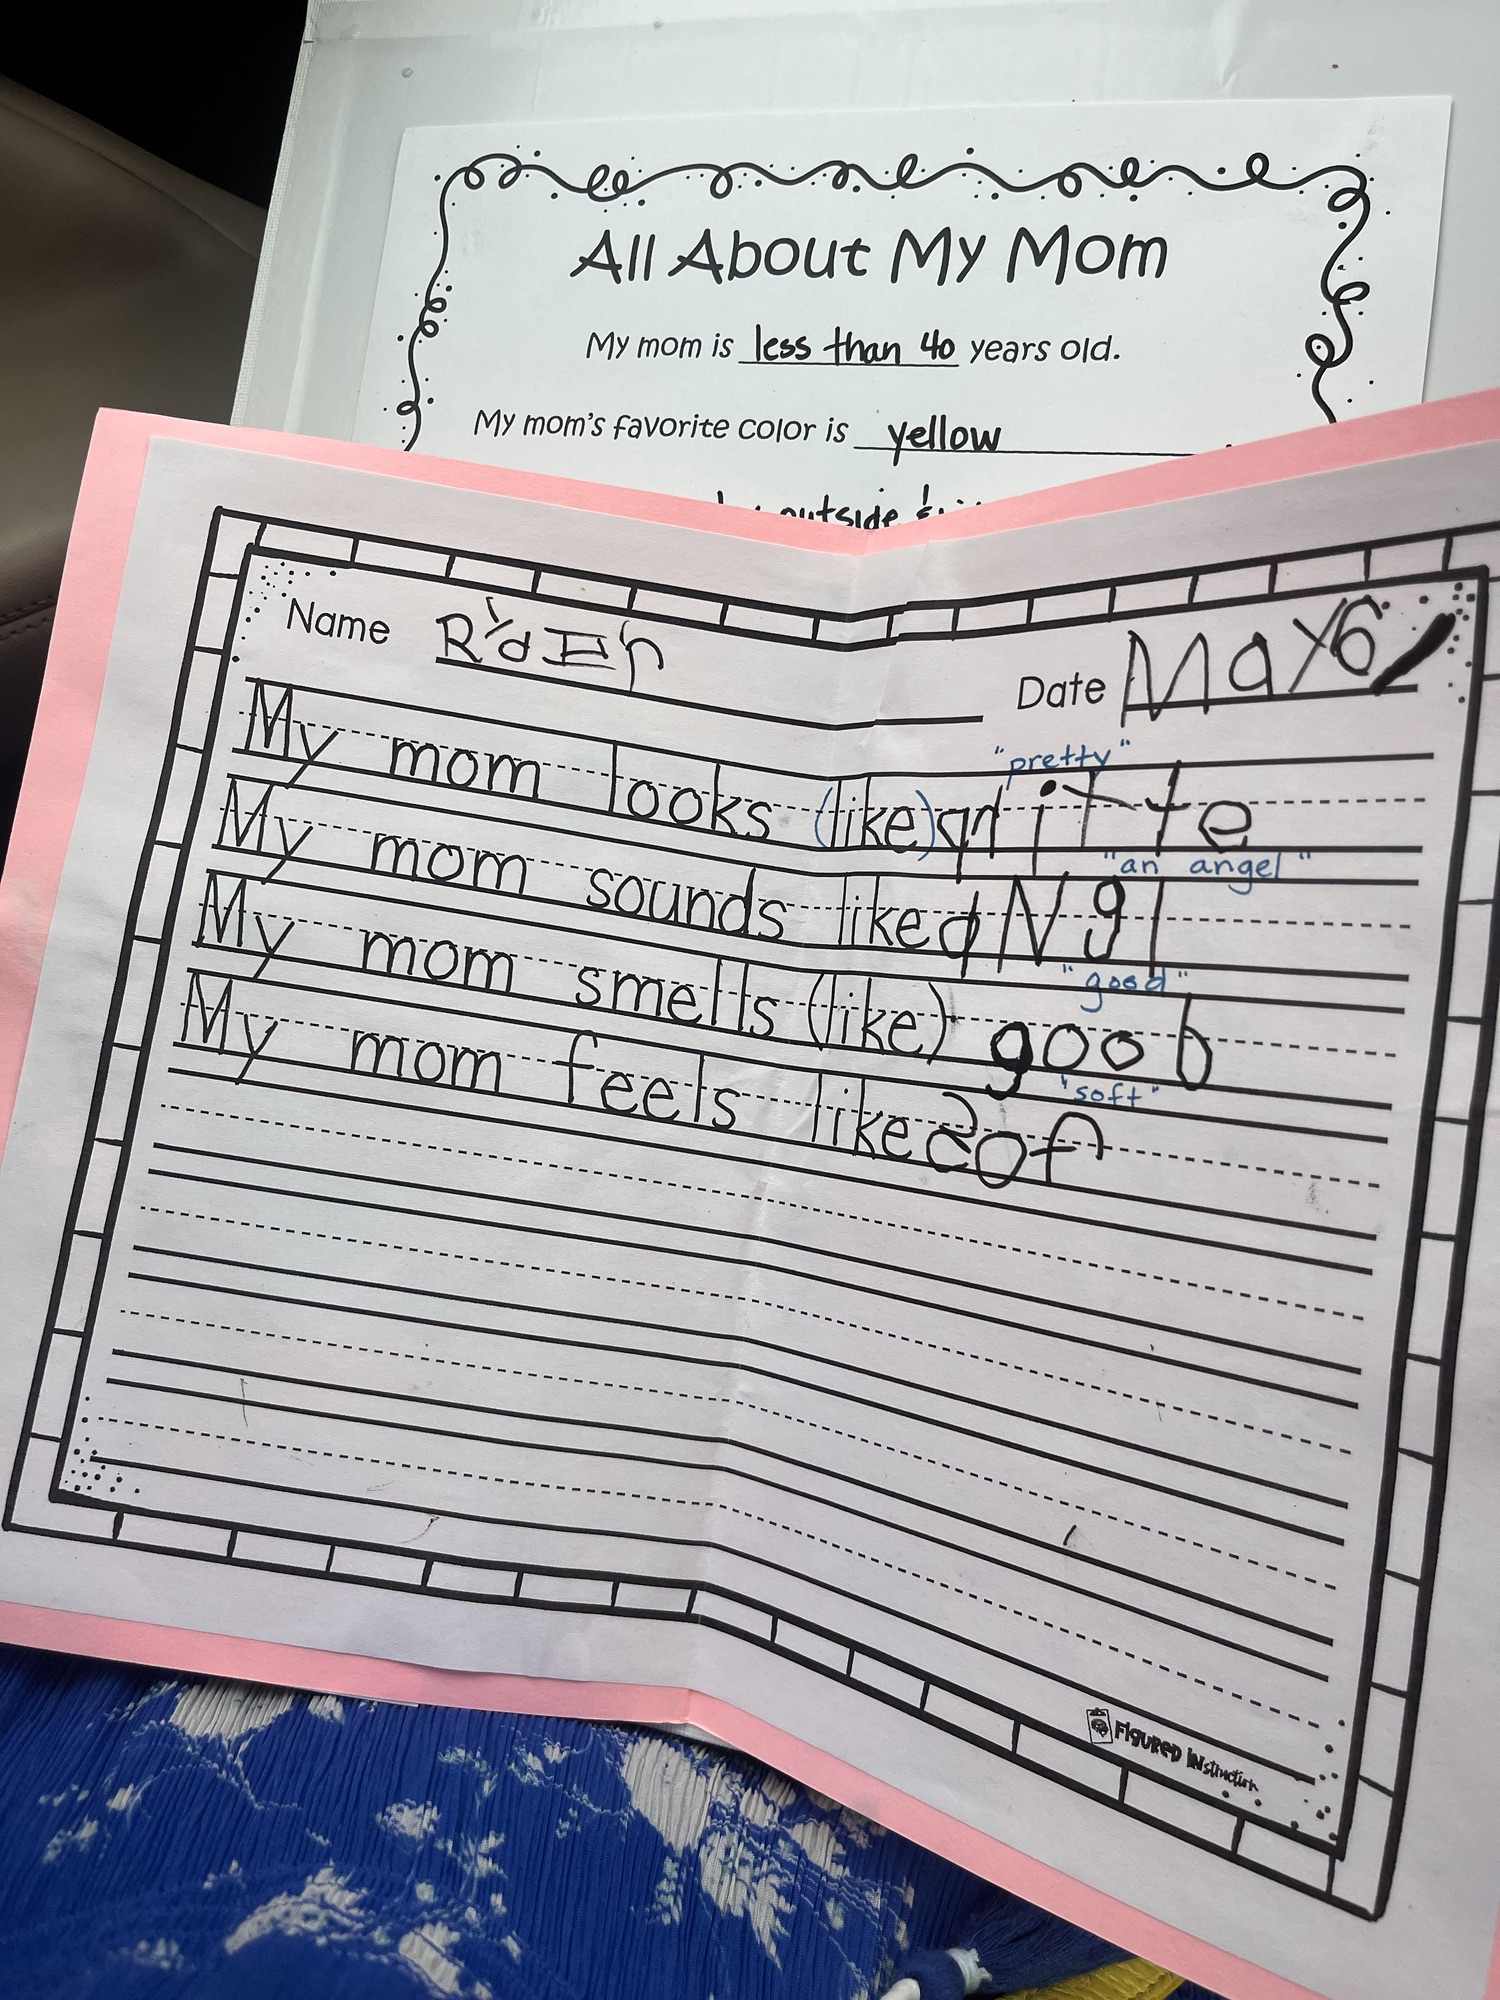 All About My Mom
My mom is less than 40 years old.
My mom's favorite color is yellow
outside
Name
Date May 6
"pretty"
My mom looks (like)
"an angel"
My mom sounds like aNgl
"good"
My mom smells (like) goob
"soft"
My mom feels like sof
Figured Instruction